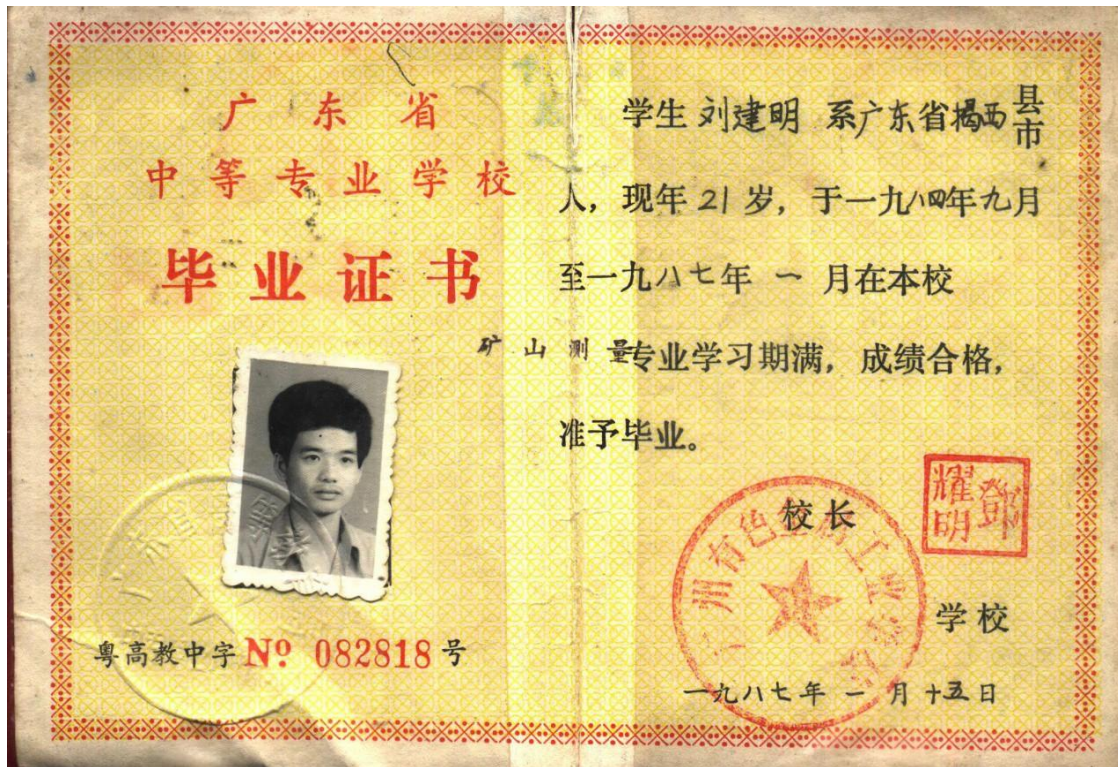 广东省
中等专业学校
毕业证书
粤高教中字 № 082818 号
学生 刘建明 系广东省揭西县
市
人，现年 21 岁，于一九八四年九月
至一九八七年 一 月在本校
矿山测量专业学习期满，成绩合格，
准予毕业。
校长
鄧耀明
广州有色金属工业学校
学校
一九八七年 一 月 十五日